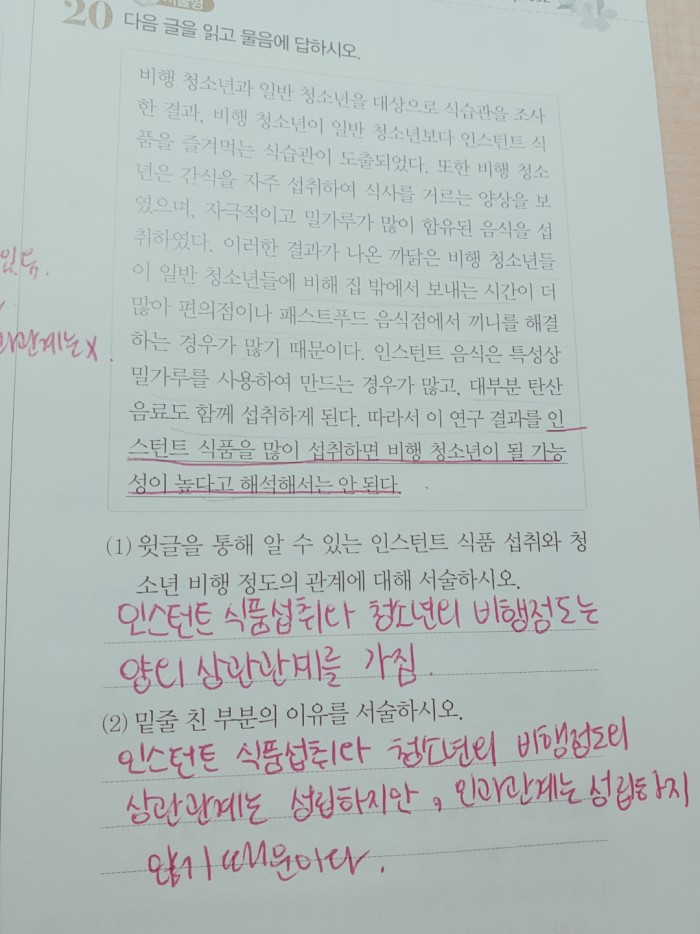 20 다음 글을 읽고 물음에 답하시오.
비행 청소년과 일반 청소년을 대상으로 식습관을 조사
한 결과, 비행 청소년이 일반 청소년보다 인스턴트 식
품을 즐겨먹는 식습관이 도출되었다. 또한 비행 청소
년은 간식을 자주 섭취하여 식사를 거르는 양상을 보
였으며, 자극적이고 밀가루가 많이 함유된 음식을 섭
취하였다. 이러한 결과가 나온 까닭은 비행 청소년들
이 일반 청소년들에 비해 집 밖에서 보내는 시간이 더
많아 편의점이나 패스트푸드 음식점에서 끼니를 해결
하는 경우가 많기 때문이다. 인스턴트 음식은 특성상
밀가루를 사용하여 만드는 경우가 많고, 대부분 탄산
음료도 함께 섭취하게 된다. 따라서 이 연구 결과를 인
스턴트 식품을 많이 섭취하면 비행 청소년이 될 가능
성이 높다고 해석해서는 안 된다.
있음.
과관계는 X.
(1) 윗글을 통해 알 수 있는 인스턴트 식품 섭취와 청
소년 비행 정도의 관계에 대해 서술하시오.
인스턴트 식품섭취와 청소년의 비행정도는
양의 상관관계를 가짐.
(2) 밑줄 친 부분의 이유를 서술하시오.
인스턴트 식품섭취와 청소년의 비행정도의
상관관계는 성립하지만, 인과관계는 성립하지
않기 때문이다.